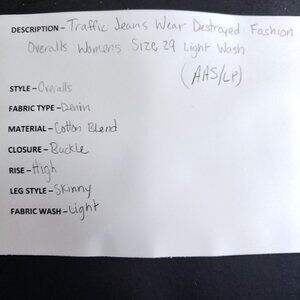 DESCRIPTION – Traffic Jeans Wear Destroyed Fashion
Overalls Womens Size 29 Light Wash
(AAS/LP)
STYLE – Overalls
FABRIC TYPE – Denim
MATERIAL – Cotton Blend
CLOSURE – Buckle
RISE – High
LEG STYLE – Skinny
FABRIC WASH – Light